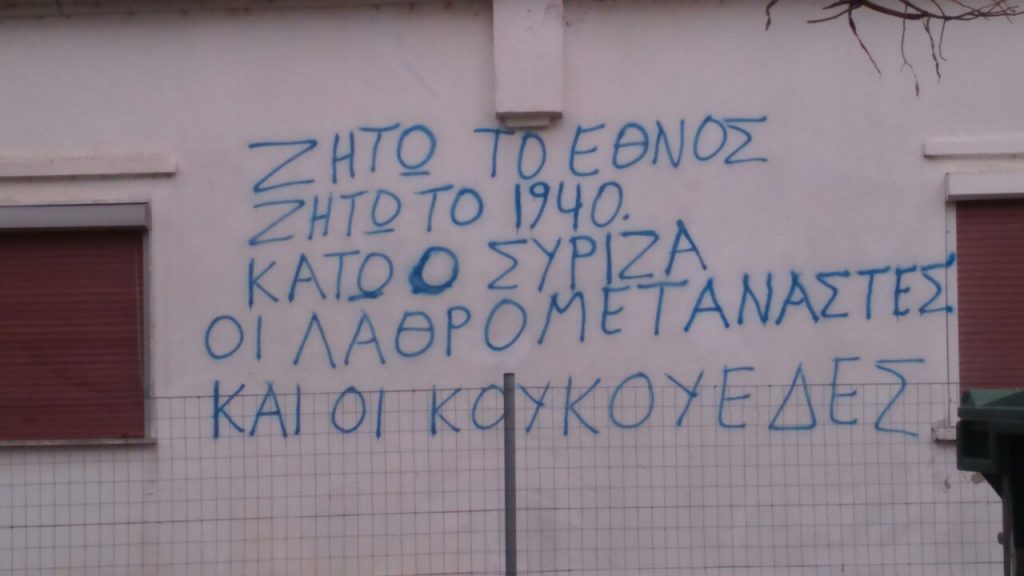 ΖΗΤΩ ΤΟ ΕΘΝΟΣ
ΖΗΤΩ ΤΟ 1940.
ΚΑΤΩ Ο ΣΥΡΙΖΑ
ΟΙ ΛΑΘΡΟΜΕΤΑΝΑΣΤΕΣ
ΚΑΙ ΟΙ ΚΟΥΚΟΥΕΔΕΣ